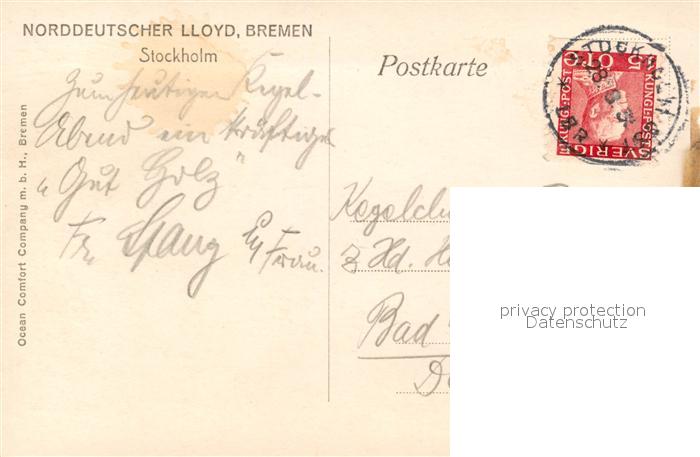 NORDDEUTSCHER LLOYD, BREMEN
Stockholm
Postkarte
Zum heutigen Kegel-
Abend ein kräftiges
„Gut Holz"
Fr. u Frau.
Kegelclu
z. Hd. H
Bad
Ocean Comfort Company m. b. H., Bremen
STOCKHOLM
KUNGL. POST
SVERIGE
privacy protection
Datenschutz